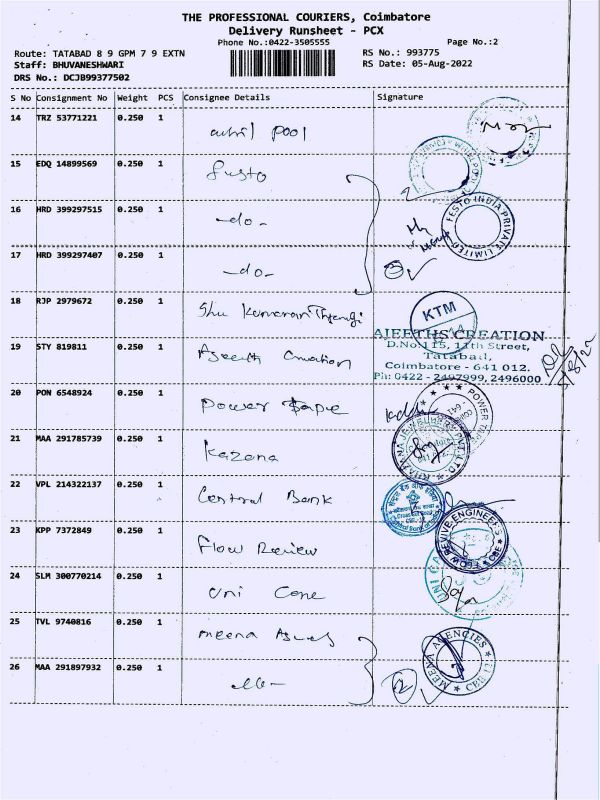 THE PROFESSIONAL COURIERS, Coimbatore
Delivery Runsheet - PCX
Phone No.:0422-3505555
Page No.:2
Route: TATABAD 8 9 GPM 7 9 EXTN
RS No.: 993775
Staff: BHUVANESHWARI
RS Date: 05-Aug-2022
DRS No.: DCJB99377502
S No Consignment No Weight PCS Consignee Details Signature
14 TRZ 53771221 0.250 1
pool
15 EDQ 14899569 0.250 1
Festo
16 HRD 399297515 0.250 1
-do-
FESTO INDIA PRIVATE LIMITED
17 HRD 399297407 0.250 1
-do-
18 RJP 2979672 0.250 1
KTM
19 STY 819811 0.250 1
Ajeeth Creation
AJEETHS CREATION
D.No:115, 11th Street,
Tatabad,
Coimbatore - 641 012.
Ph: 0422 - 2497999, 2496000
20 PON 6548924 0.250 1
Power Tape
POWER
21 MAA 291785739 0.250 1
Kazana
22 VPL 214322137 0.250 1
Central Bank
23 KPP 7372849 0.250 1
Flow Review
FLOW REVIVE ENGINEERS CBE
24 SLM 300770214 0.250 1
Uni Cone
25 TVL 9740816 0.250 1
Meena
MEENA AGENCIES
26 MAA 291897932 0.250 1